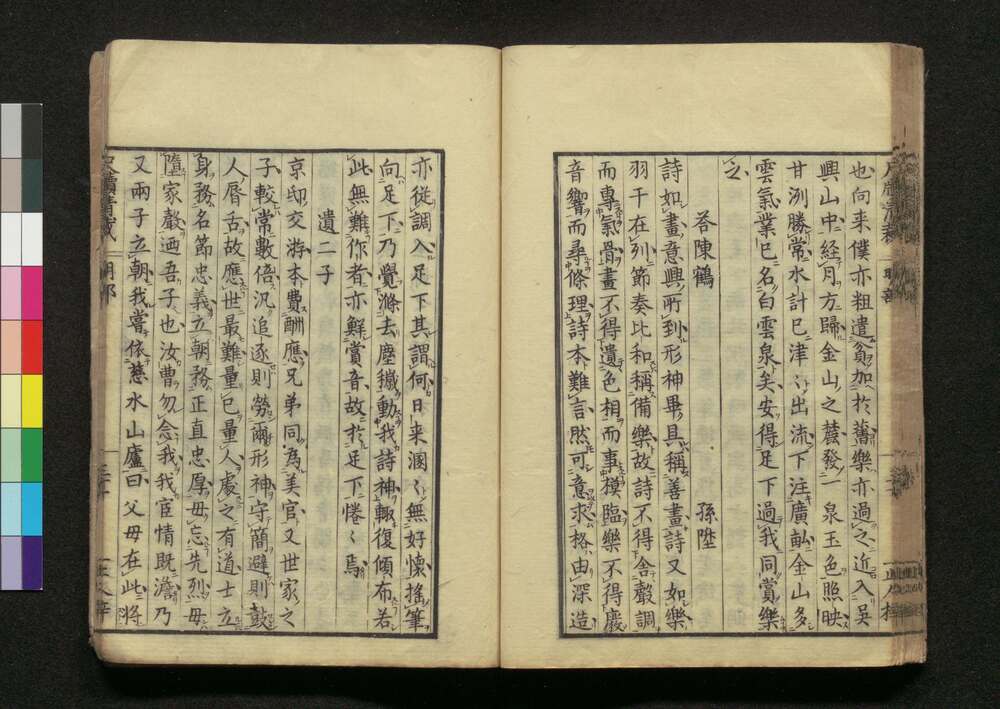 也向来僕亦粗遣貧加於舊樂亦過之近入吳
興山中経月方歸金山之麓發一泉玉色照映
甘洌勝常水計已津々出流下注廣畝金山多
雲氣業已名白雲泉矣安得足下過我同賞樂
之
荅陳鶴 孫陞
詩如畫意興所到形神畢具稱善畫詩又如樂
羽干在列節奏比和稱備樂故詩不得舍聲調
而專氣骨畫不得遺色相而事模臨樂不得廢
音響而尋條理詩本難言然可意求格由深造
亦從調入足下其謂何日来溷々無好懐搖筆
向足下乃覺滌去塵擬動我詩神輙復傾布若
此無難作者亦鮮賞音故於足下惓々焉
遺二子
京邸交游本費酬應兄弟同為美官又世家之
子較常數倍汎追逐則勞爾形神守簡避則鼓
人脣舌故應世最難量已量人處之有道士立
身務名節忠義立朝務正直忠厚毋忘先烈毋
隳家聲迺吾子也汝曹勿念我我宦情既澹乃
又兩子立朝我嘗依慈水山廬曰父母在此將